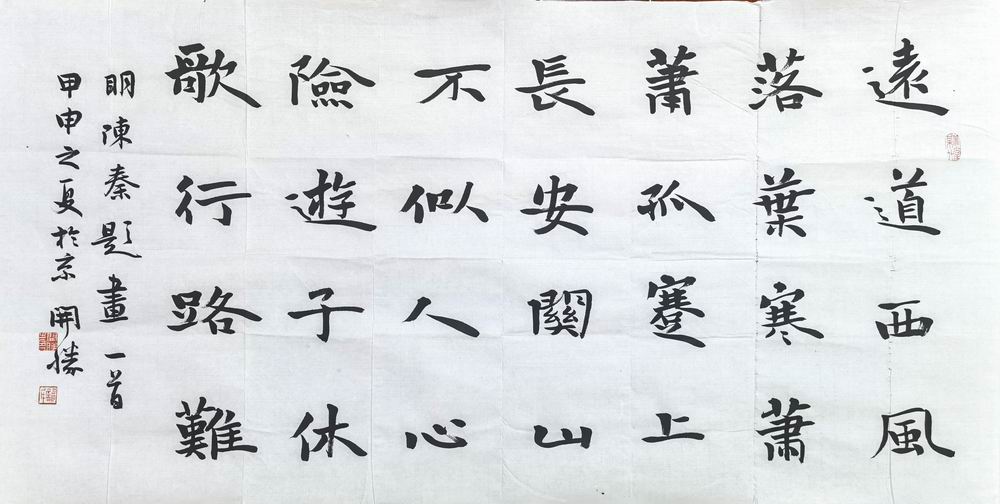 遠道西風
落葉寒蕭
蕭孤蹇上
長安關山
不似人心
險遊子休
歌行路難
眀陳秦題畫一首
甲申之夏於京開勝